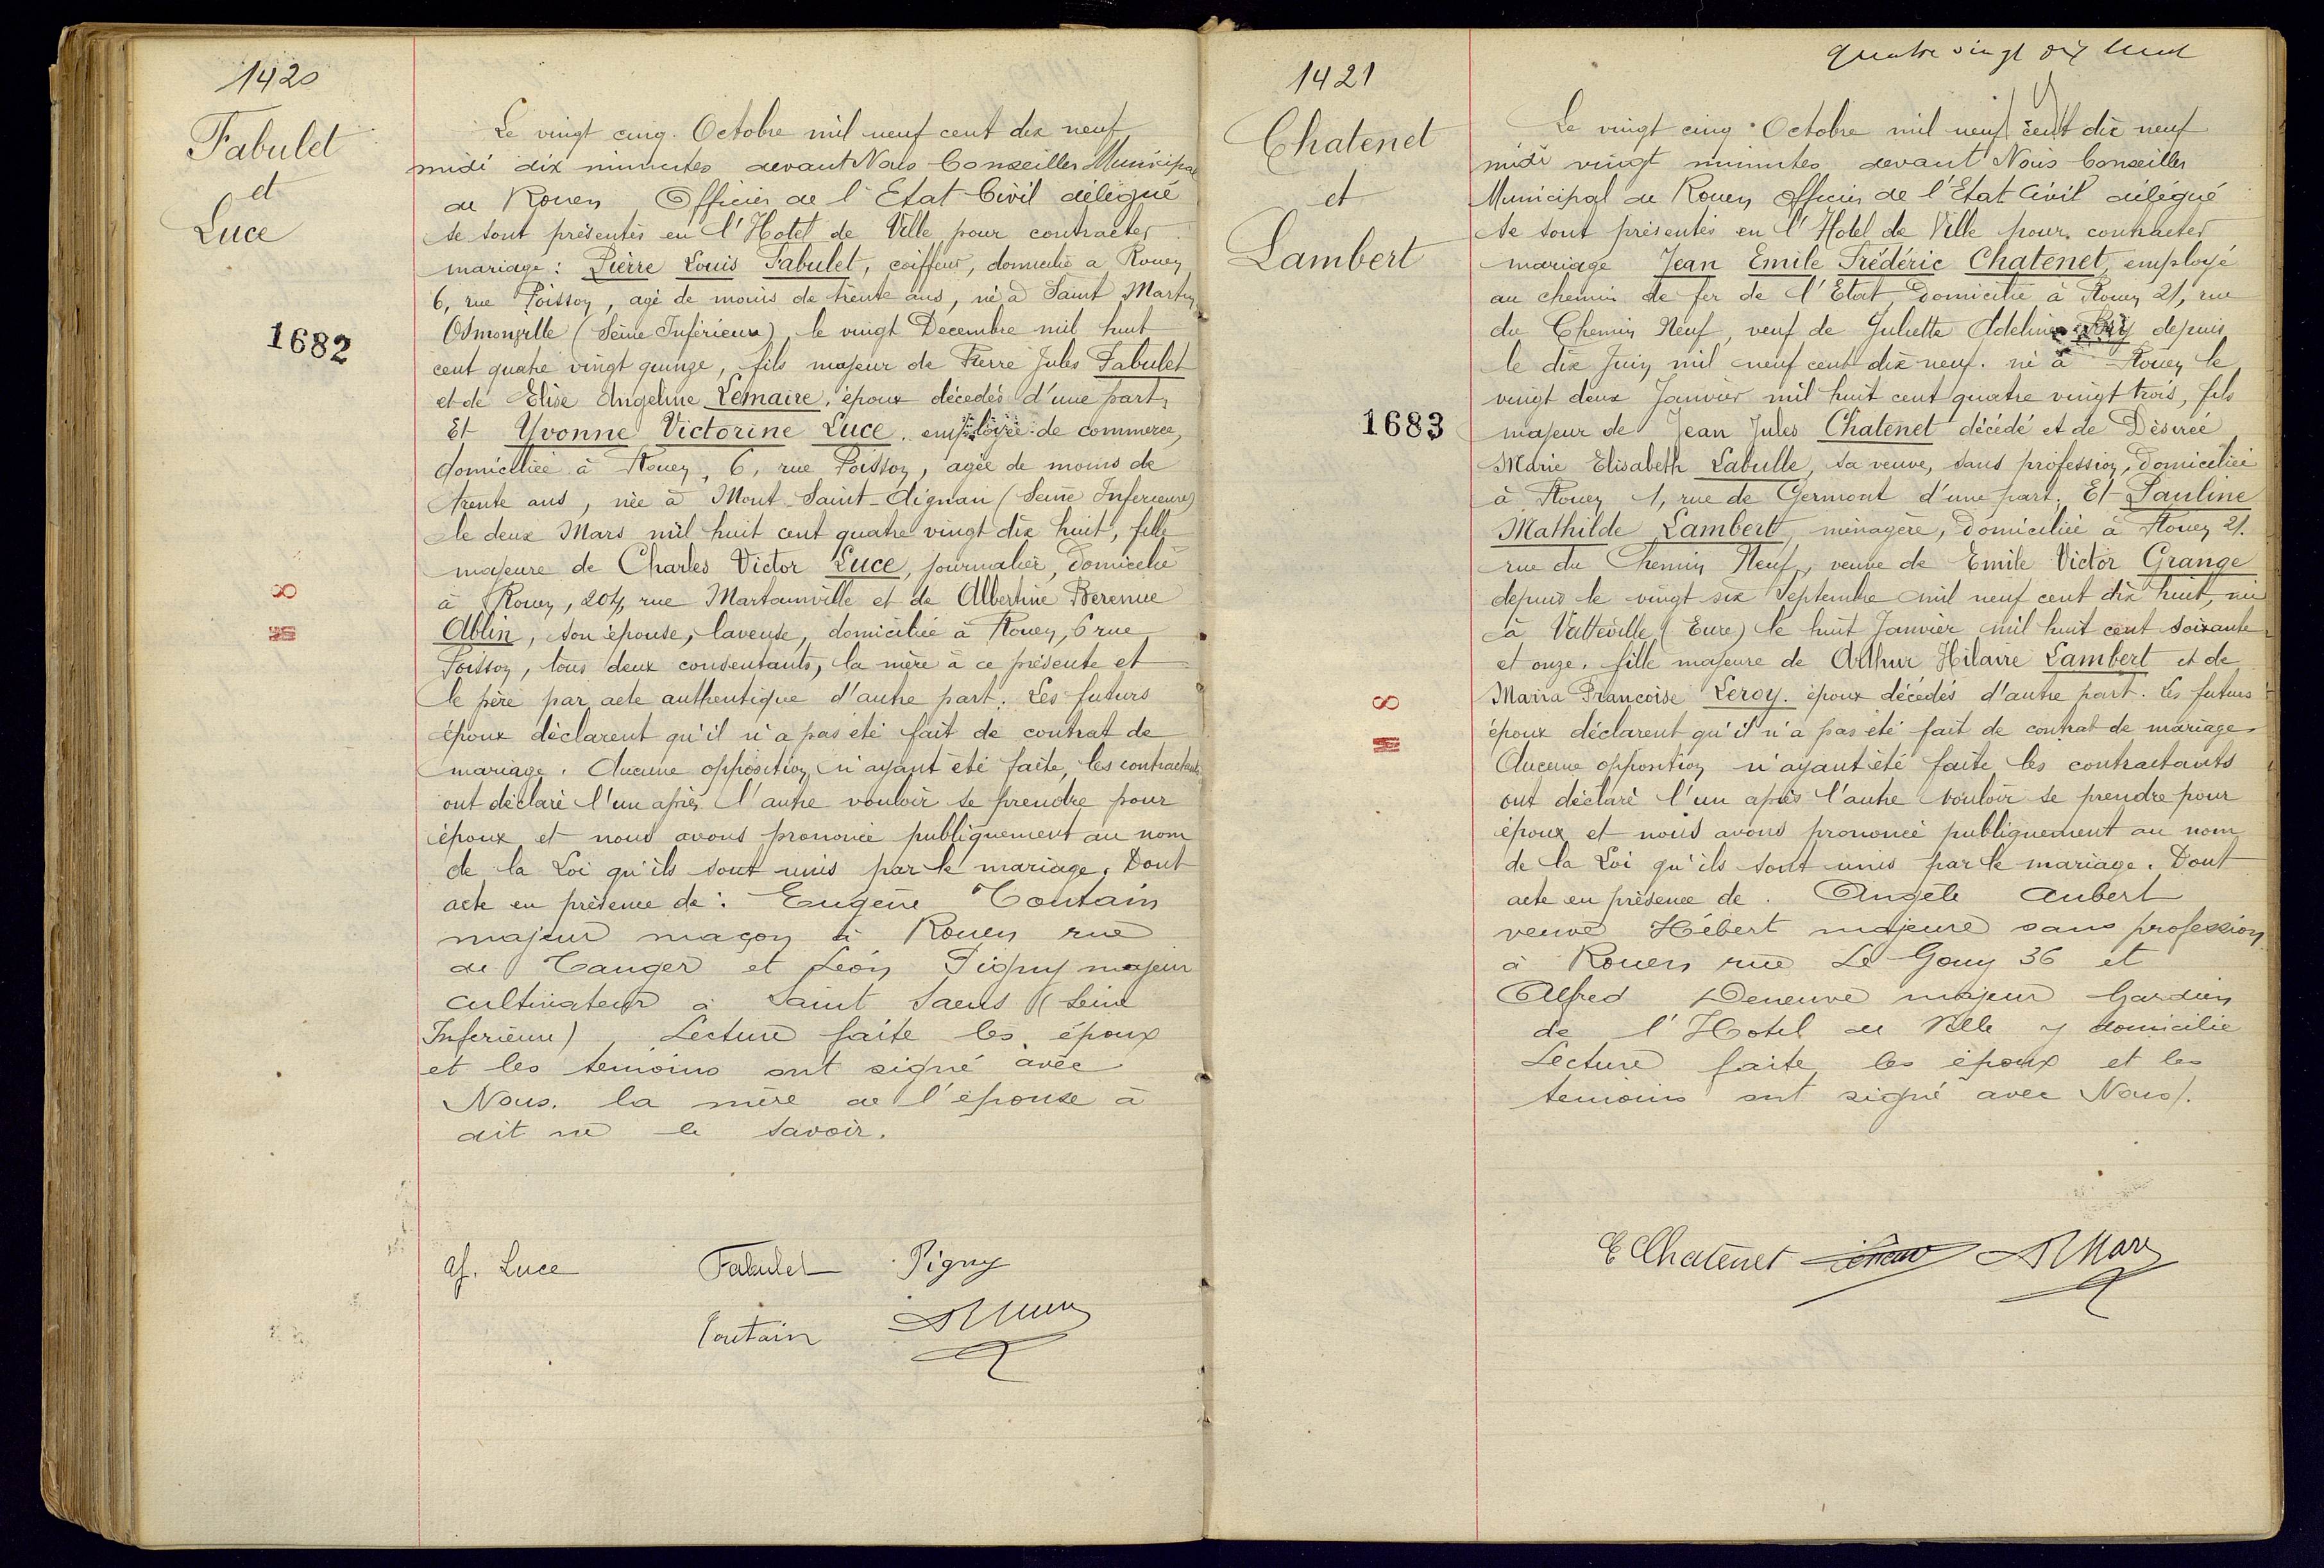 1420
Fabulet
et
Luce
1682
Le vingt cinq Octobre mil neuf cent dix neuf
midi dix minutes devant Nous Conseiller Municipal
de Rouen Officier de l'Etat Civil délégué
se sont présentés en l'Hotel de Ville pour contracter
mariage : Pierre Louis Fabulet, coiffeur, domicilié à Rouen
6, rue Poisson, agé de moins de trente ans, né à Saint Martin
Osmonville (Seine Inférieure) le vingt Decembre mil huit
cent quatre vingt quinze, fils majeur de Pierre Jules Fabulet
et de Elise Angeline Lemaire, époux décedés d'une part,
Et Yvonne Victorine Luce, employée de commerce,
domiciliée à Rouen, 6, rue Poisson, agée de moins de
trente ans, née à Mont-Saint-Aignan (Seine Inferieure)
le deux Mars mil huit cent quatre vingt dix huit, fille
majeure de Charles Victor Luce, journalier, domicilié
à Rouen, 204, rue Martainville et de Albertine Berenice
Ablin, son épouse, laveuse, domiciliée à Rouen, 6 rue
Poisson, tous deux consentants, la mère à ce présente et
le père par acte authentique d'autre part. Les futurs
époux déclarent qu'il n'a pas été fait de contrat de
mariage. Aucune opposition n'ayant été faite, les contractants
ont déclaré l'un après l'autre vouloir se prendre pour
époux et nous avons prononcé publiquement au nom
de la Loi qu'ils sont unis par le mariage. Dont
acte en présence de : Eugène Toutain
majeur maçon à Rouen rue
de Tanger et Léon Pigny majeur
cultivateur à Saint Saens (Seine
Inferieure) Lecture faite les époux
et les temoins ont signé avec
Nous. la mère de l'épouse à
dit ne le savoir.
Luce Fabulet Pigny
Toutain
quatre vingt dix neuf
1421
Chatenet
et
Lambert
1683
Le vingt cinq Octobre mil neuf cent dix neuf
midi vingt minutes devant Nous Conseiller
Municipal de Rouen Officier de l'Etat Civil délégué
se sont présentés en l'Hotel de Ville pour contracter
mariage Jean Emile Frédéric Chatenet, employé
au chemin de fer de l'Etat, domicilié à Rouen 21, rue
du Chemin Neuf, veuf de Juliette Adeline depuis
le dix Juin mil neuf cent dix neuf. né à Rouen le
vingt deux Janvier mil huit cent quatre vingt trois, fils
majeur de Jean Jules Chatenet décédé et de Désirée
Marie Elisabeth Labulle, sa veuve, sans profession, domiciliée
à Rouen 1, rue de Germont d'une part. Et Pauline
Mathilde Lambert, ménagère, domiciliée à Rouen 21.
rue du Chemin Neuf, veuve de Emile Victor Grange
depuis le vingt six Septembre mil neuf cent dix huit, née
à Vatteville (Eure) le huit Janvier mil huit cent soixante
et onze. fille majeure de Arthur Hilaire Lambert et de
Maria Françoise Leroy. époux décédés d'autre part. Les futurs
époux déclarent qu'il n'a pas été fait de contrat de mariage
Aucune opposition n'ayant été faite les contractants
ont déclaré l'un après l'autre vouloir se prendre pour
époux et nous avons prononcé publiquement au nom
de la Loi qu'ils sont unis par le mariage. Dont
acte en présence de . Angèle Aubert
veuve Hébert majeure sans profession
à Rouen rue Le Gouy 36 et
Alfred Deneuve majeur Gardien
de l'Hotel de Ville y domicilié
Lecture faite les époux et les
temoins ont signé avec Nous/.
E Chatenet